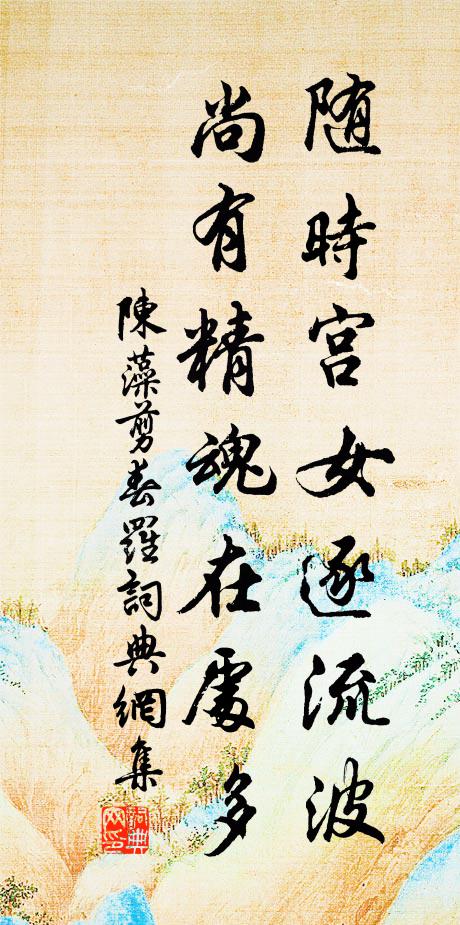 随時宮女逐流波
尚有精魂在處多
陳藻剪春羅詞典網集
詞典
网印